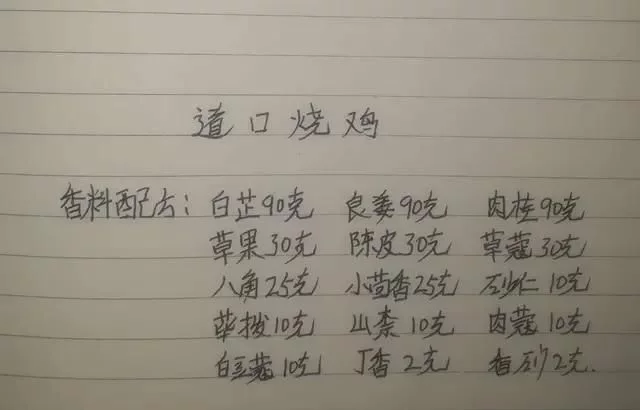 道口烧鸡
香料配方：白芷90克 良姜90克 肉桂90克
草果30克 陈皮30克 草蔻30克
八角25克 小茴香25克 砂仁10克
荜拨10克 山柰10克 肉蔻10克
白豆蔻10克 丁香2克 香砂2克.